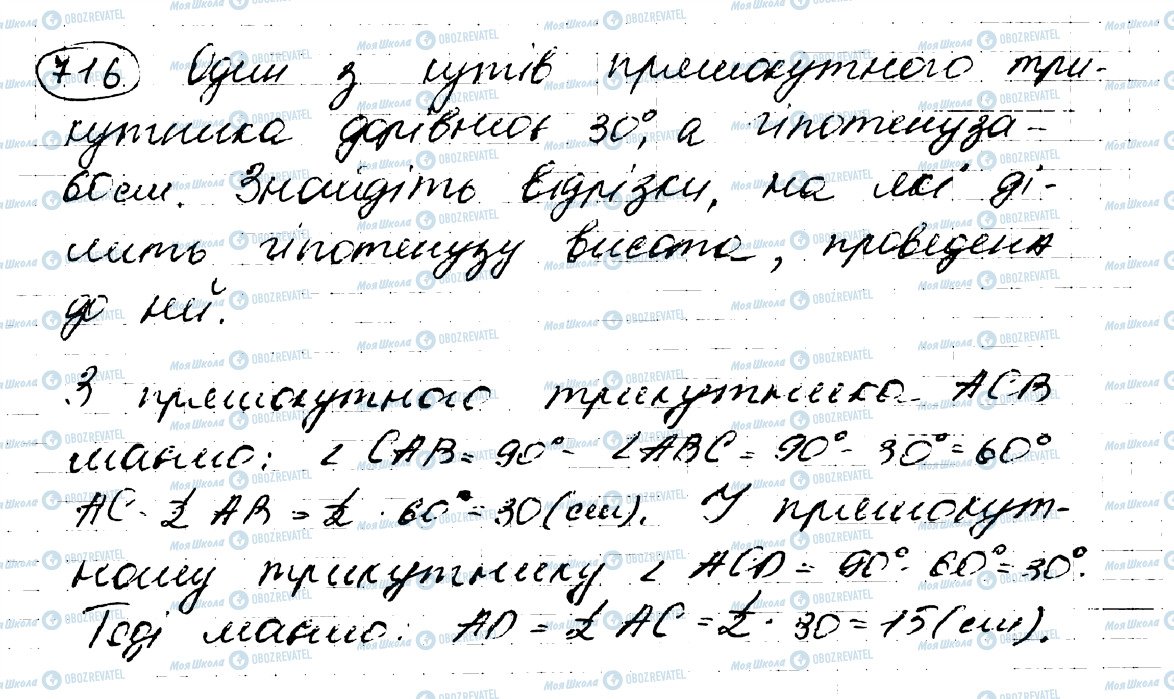 716 Один з кутів прямокутного три-
кутника дорівнює 30°, а гіпотенуза -
60 см. Знайдіть відрізки, на які ді-
лить гіпотенузу висота, проведена
до неї.
З прямокутного трикутника ACB
маємо: ∠CAB = 90° - ∠ABC = 90° - 30° = 60°
AC - 1/2 AB = 1/2 · 60° = 30 (см). У прямокут-
ному трикутнику ∠ACD = 90° - 60° = 30°.
Тоді маємо: AD = 1/2 AC = 1/2 · 30 = 15 (см).